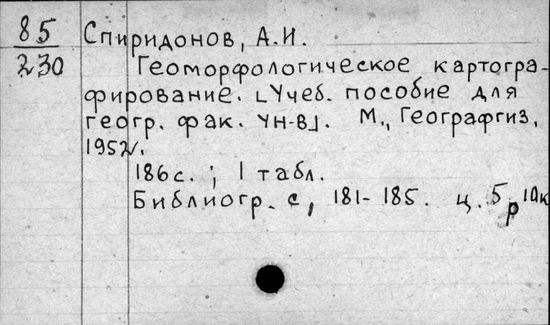 85 Спиридонов, А.И.
230 Геоморфологическое картогра-
фирование. [Учеб. пособие для
геогр. фак. ун-в]. М., Географгиз,
1952.
186 с.; 1 табл.
Библиогр. с, 181-185. ц. 5р 10к